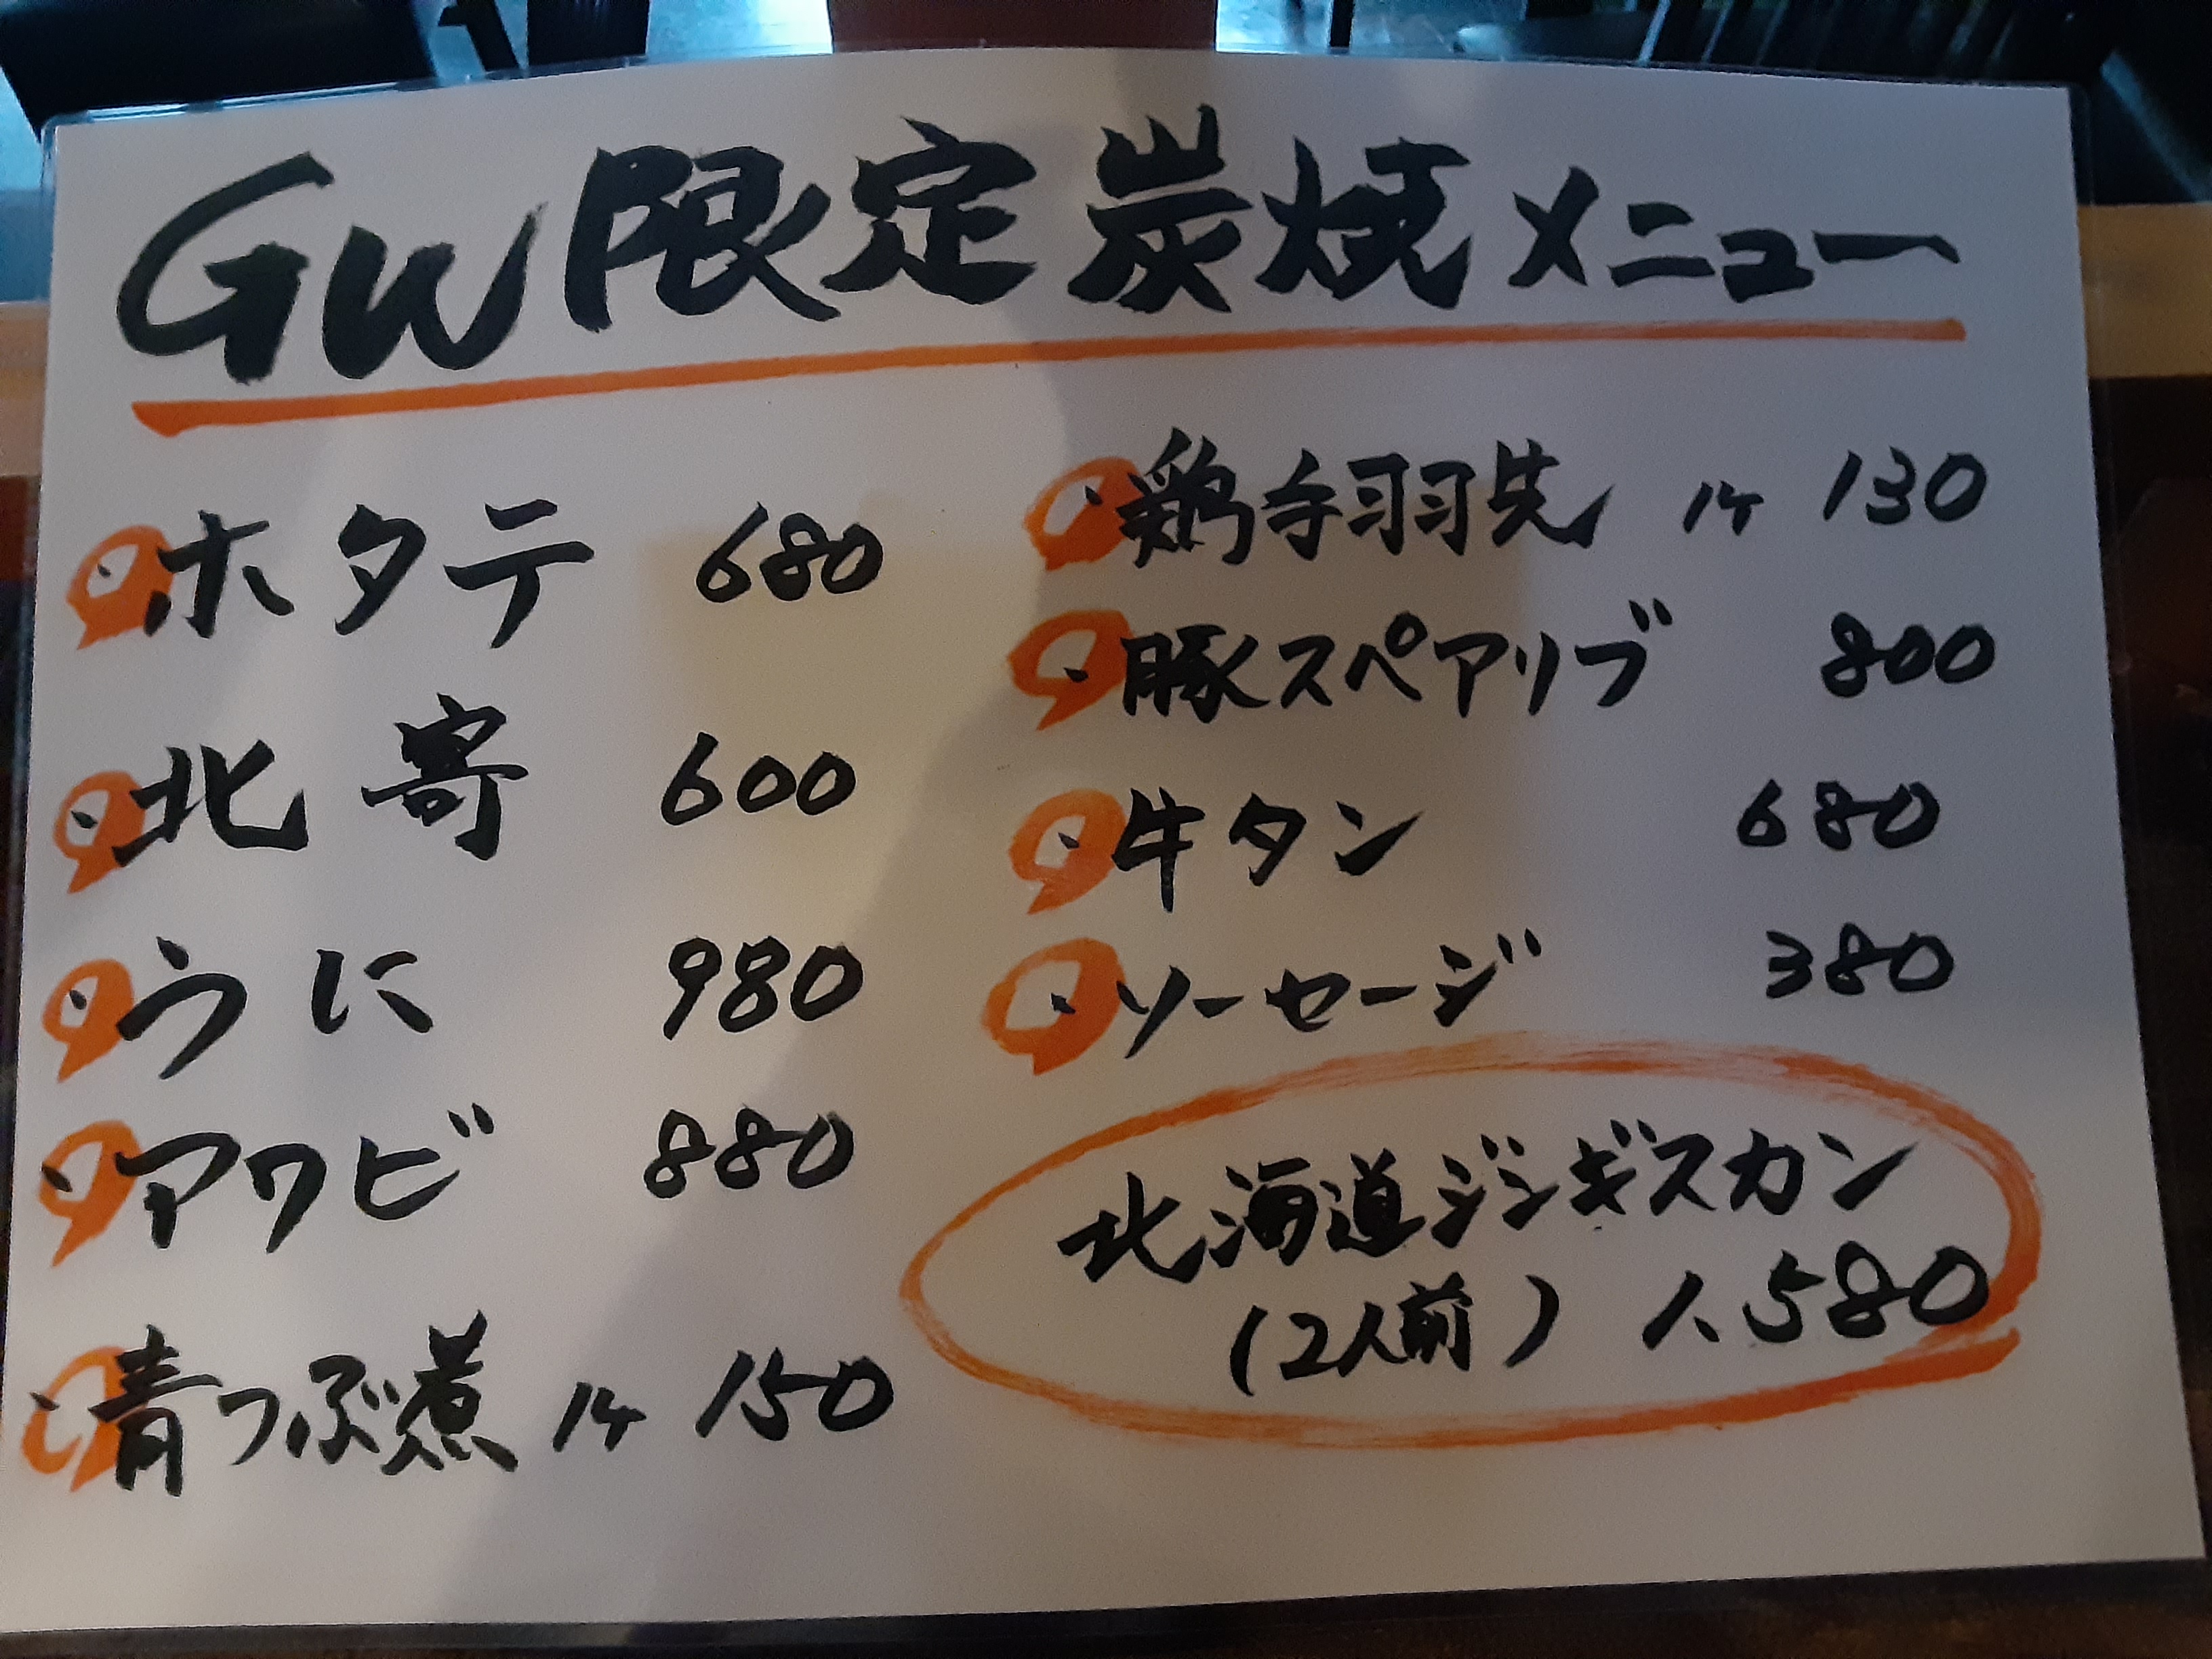 GW限定炭焼メニュー
・ホタテ 680
・北寄 600
・うに 980
・アワビ 880
・青つぶ煮 1ケ 150
・鶏手羽先 1ケ 130
・豚スペアリブ 800
・牛タン 680
・ソーセージ 380
北海道ジンギスカン
(2人前) 1,580